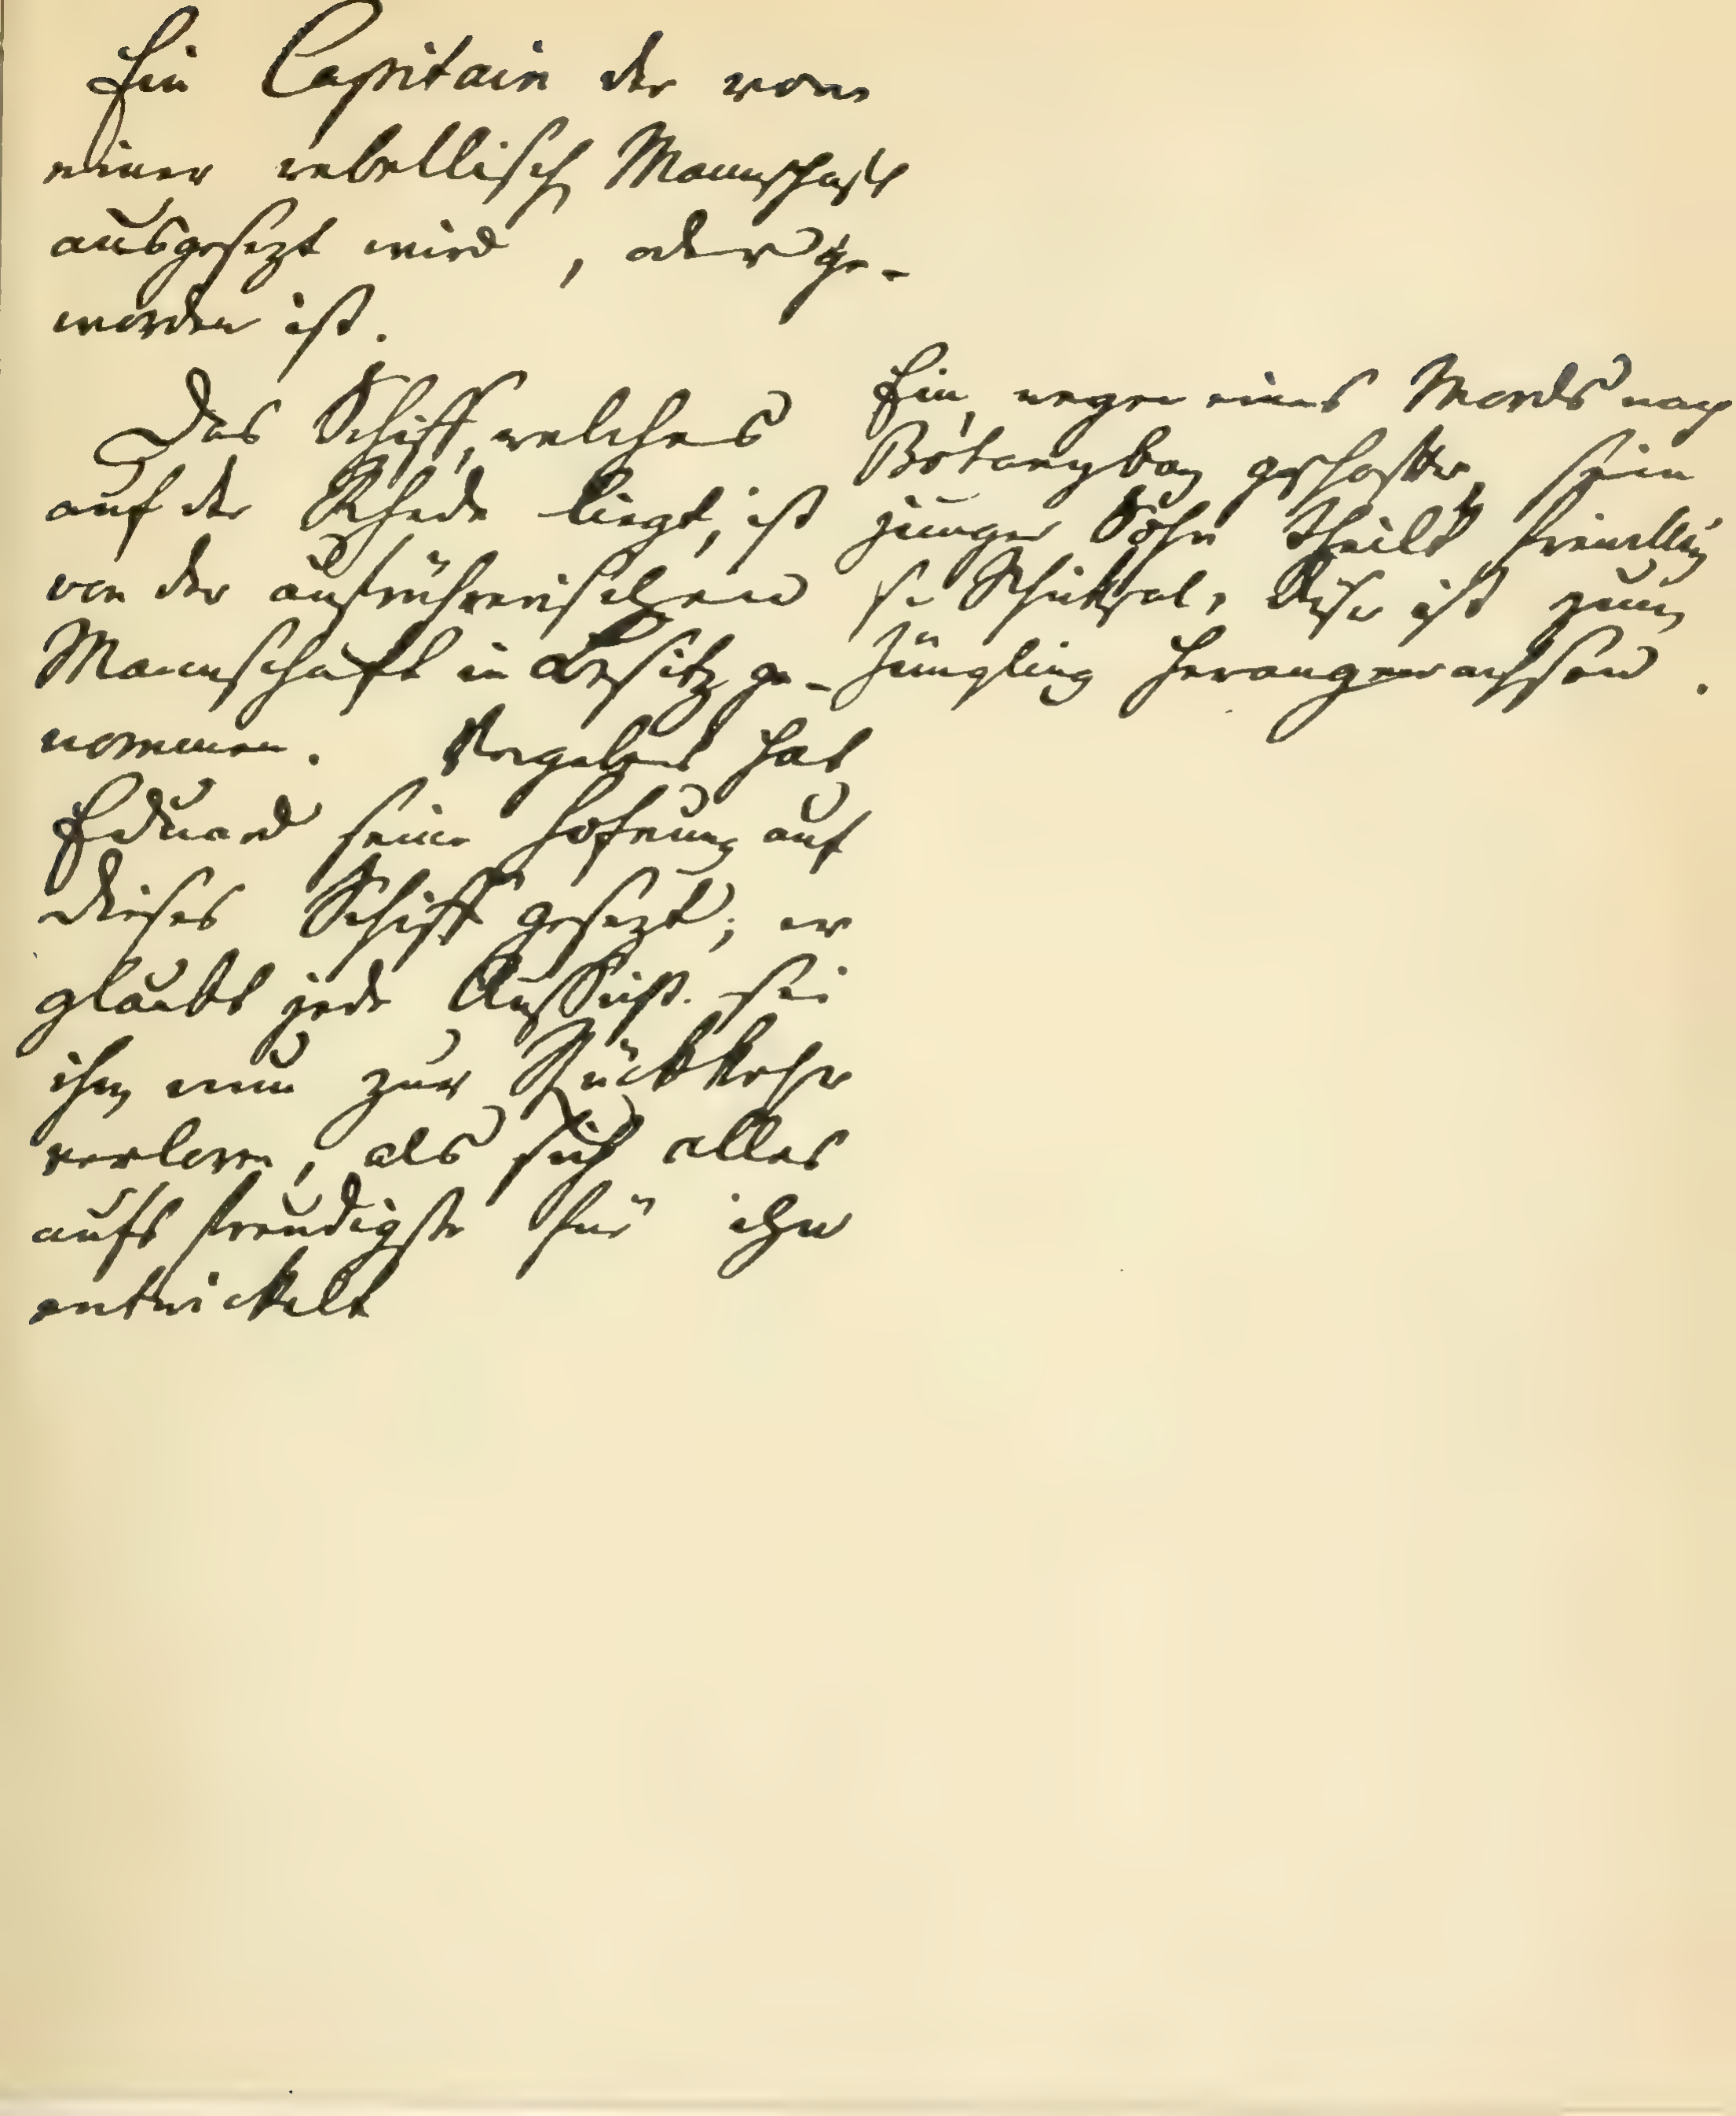 Ein Capitain der von
einer rebellisch Mannschaft
ausgesezt wird, oder ge-
worden ist.
Das Schiff, welches
auf der Rhede liegt, ist
von der aufrührerischen
Mannschaft in Besitz ge-
nommen. Vergebens hat
Eduard seine Hofnung auf
dieses Schiff gesezt; er
glaubt jede Aussicht sei
ihm nun zur Rückkehr
verloren, als sich alles
aufs freudigste für ihn
entwickelt
Ein, wegen eines Mords nach
Botanybay geschaffter, sein
junger Sohn theilt freiwillig
s. Schicksal, dieser ist zum
Jüngling herangewachsen.